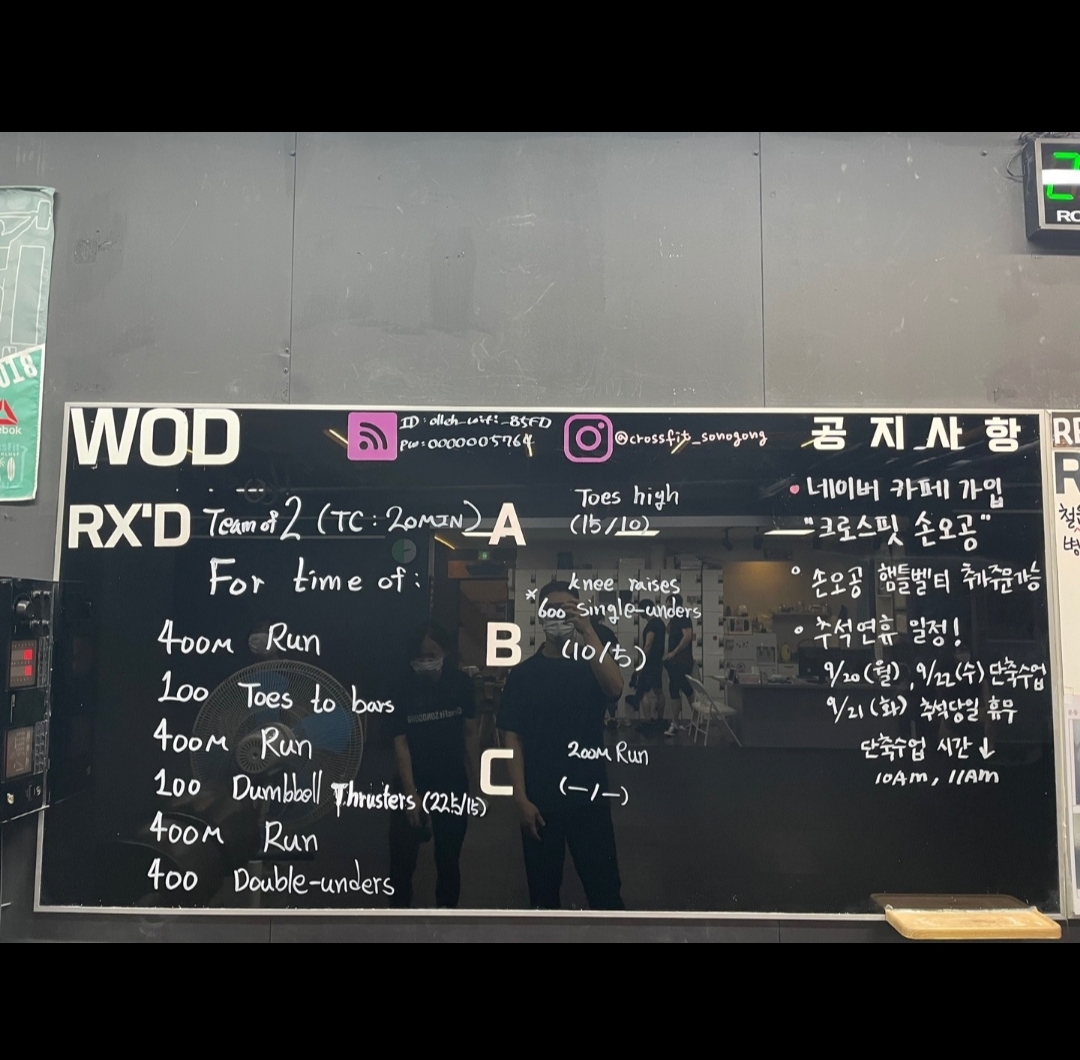 WOD
ID : olleh_wifi_B5FD
PW : 0000005764
@crossfit_sonogong
RX'D Team of 2 (TC : 20MIN)
For time of :
400M Run
100 Toes to bars
400M Run
100 Dumbbell Thrusters (22.5/15)
400M Run
400 Double-unders
A
Toes high
(15/10)
B
knee raises
* 600 single-unders
(10/5)
C
200M Run
(-/-)
공지사항
• 네이버 카페 가입
"크로스핏 손오공"
° 손오공 햄틀벨티 추가주문가능
° 추석연휴 일정!
9/20 (월), 9/22 (수) 단축수업
9/21 (화) 추석당일 휴무
단축수업 시간 ↓
10AM, 11AM